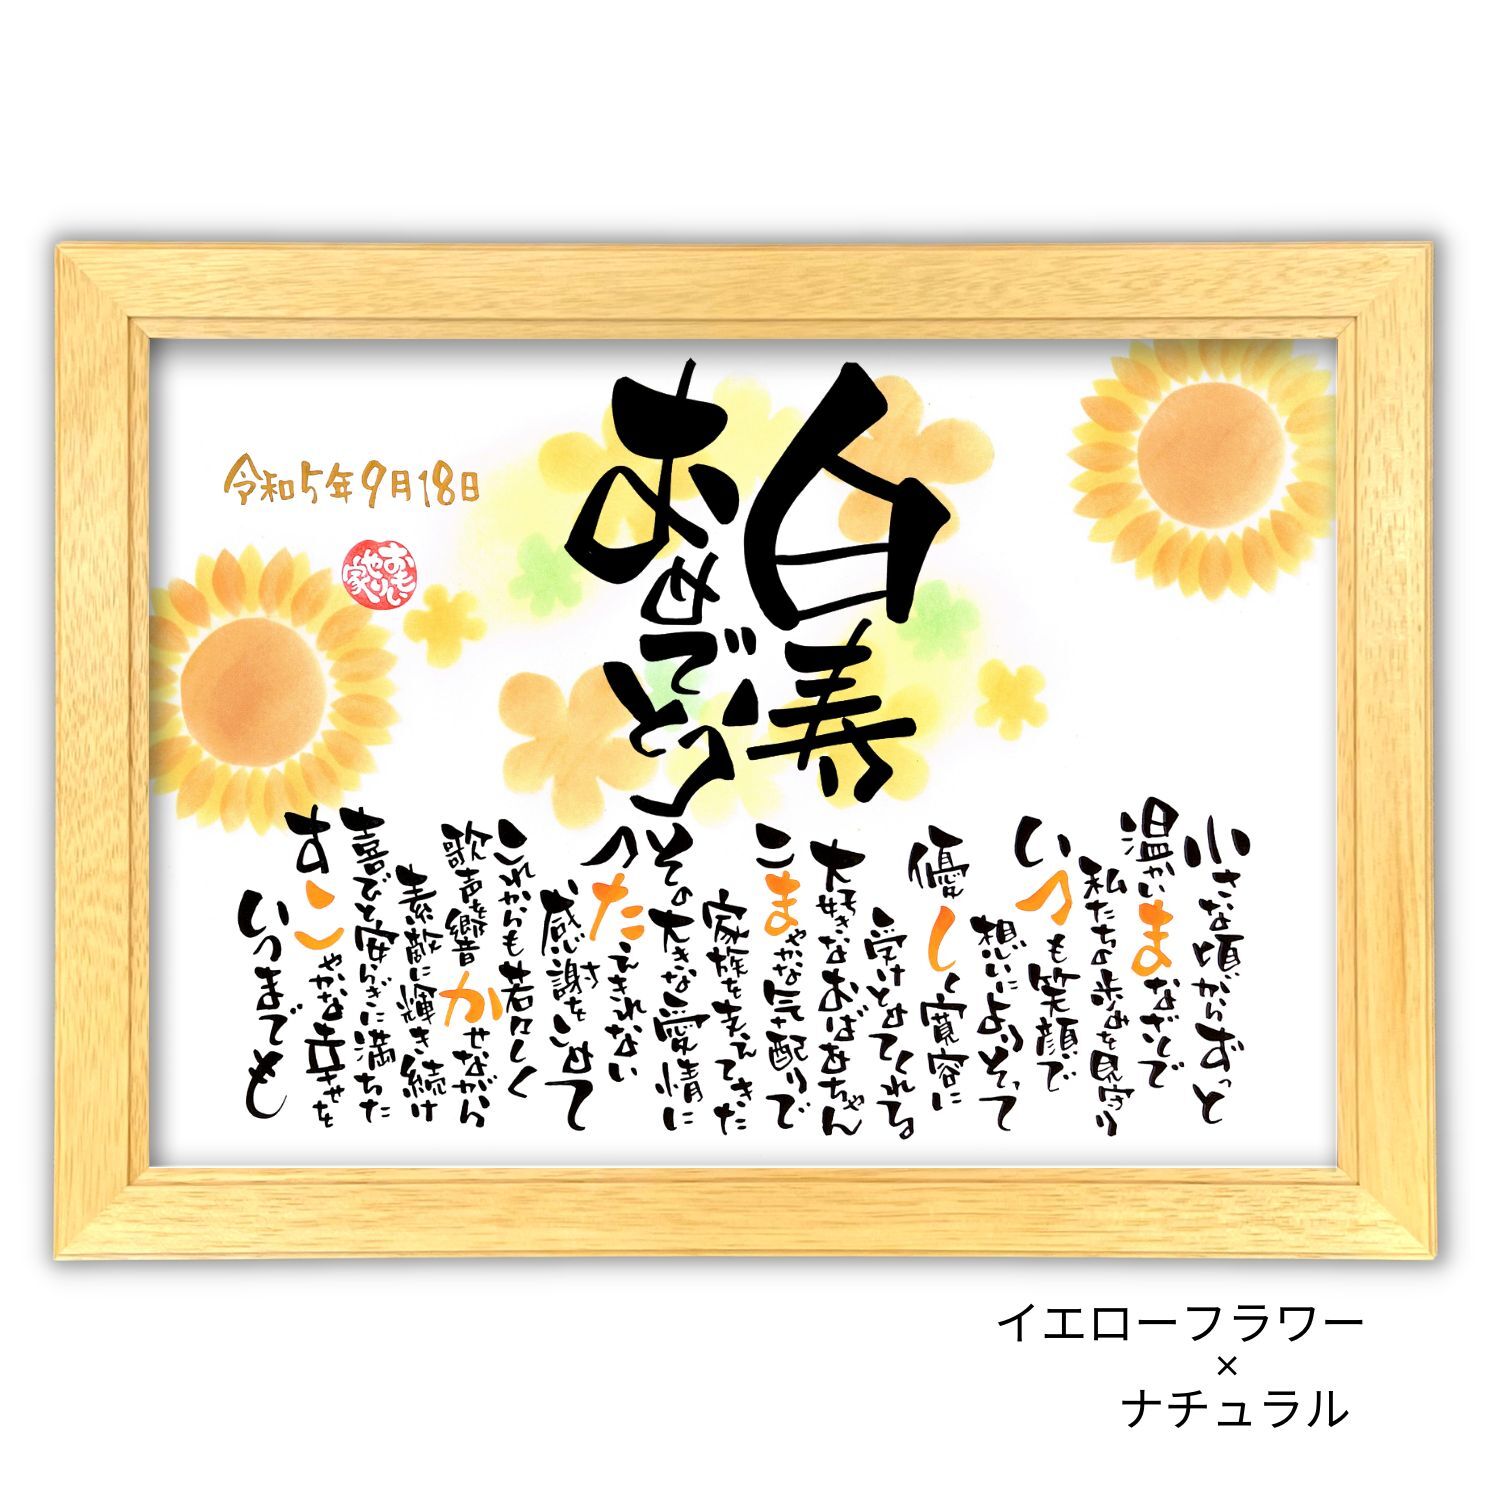 白寿
おめでとう
令和5年9月18日
おもいやり家
小さな頃からずっと
温かいまなざしで
私たちの歩みを見守り
いつも笑顔で
想いによりそって
優しく寛容に
受けとめてくれる
大好きなおばあちゃん
こまやかな気配りで
家族を支えてきた
その大きな愛情に
つたえきれない
感謝をこめて
これからも若々しく
歌声を響かせながら
素敵に輝き続け
喜びと安らぎに満ちた
すこやかな幸せを
いつまでも
イエローフラワー
×
ナチュラル